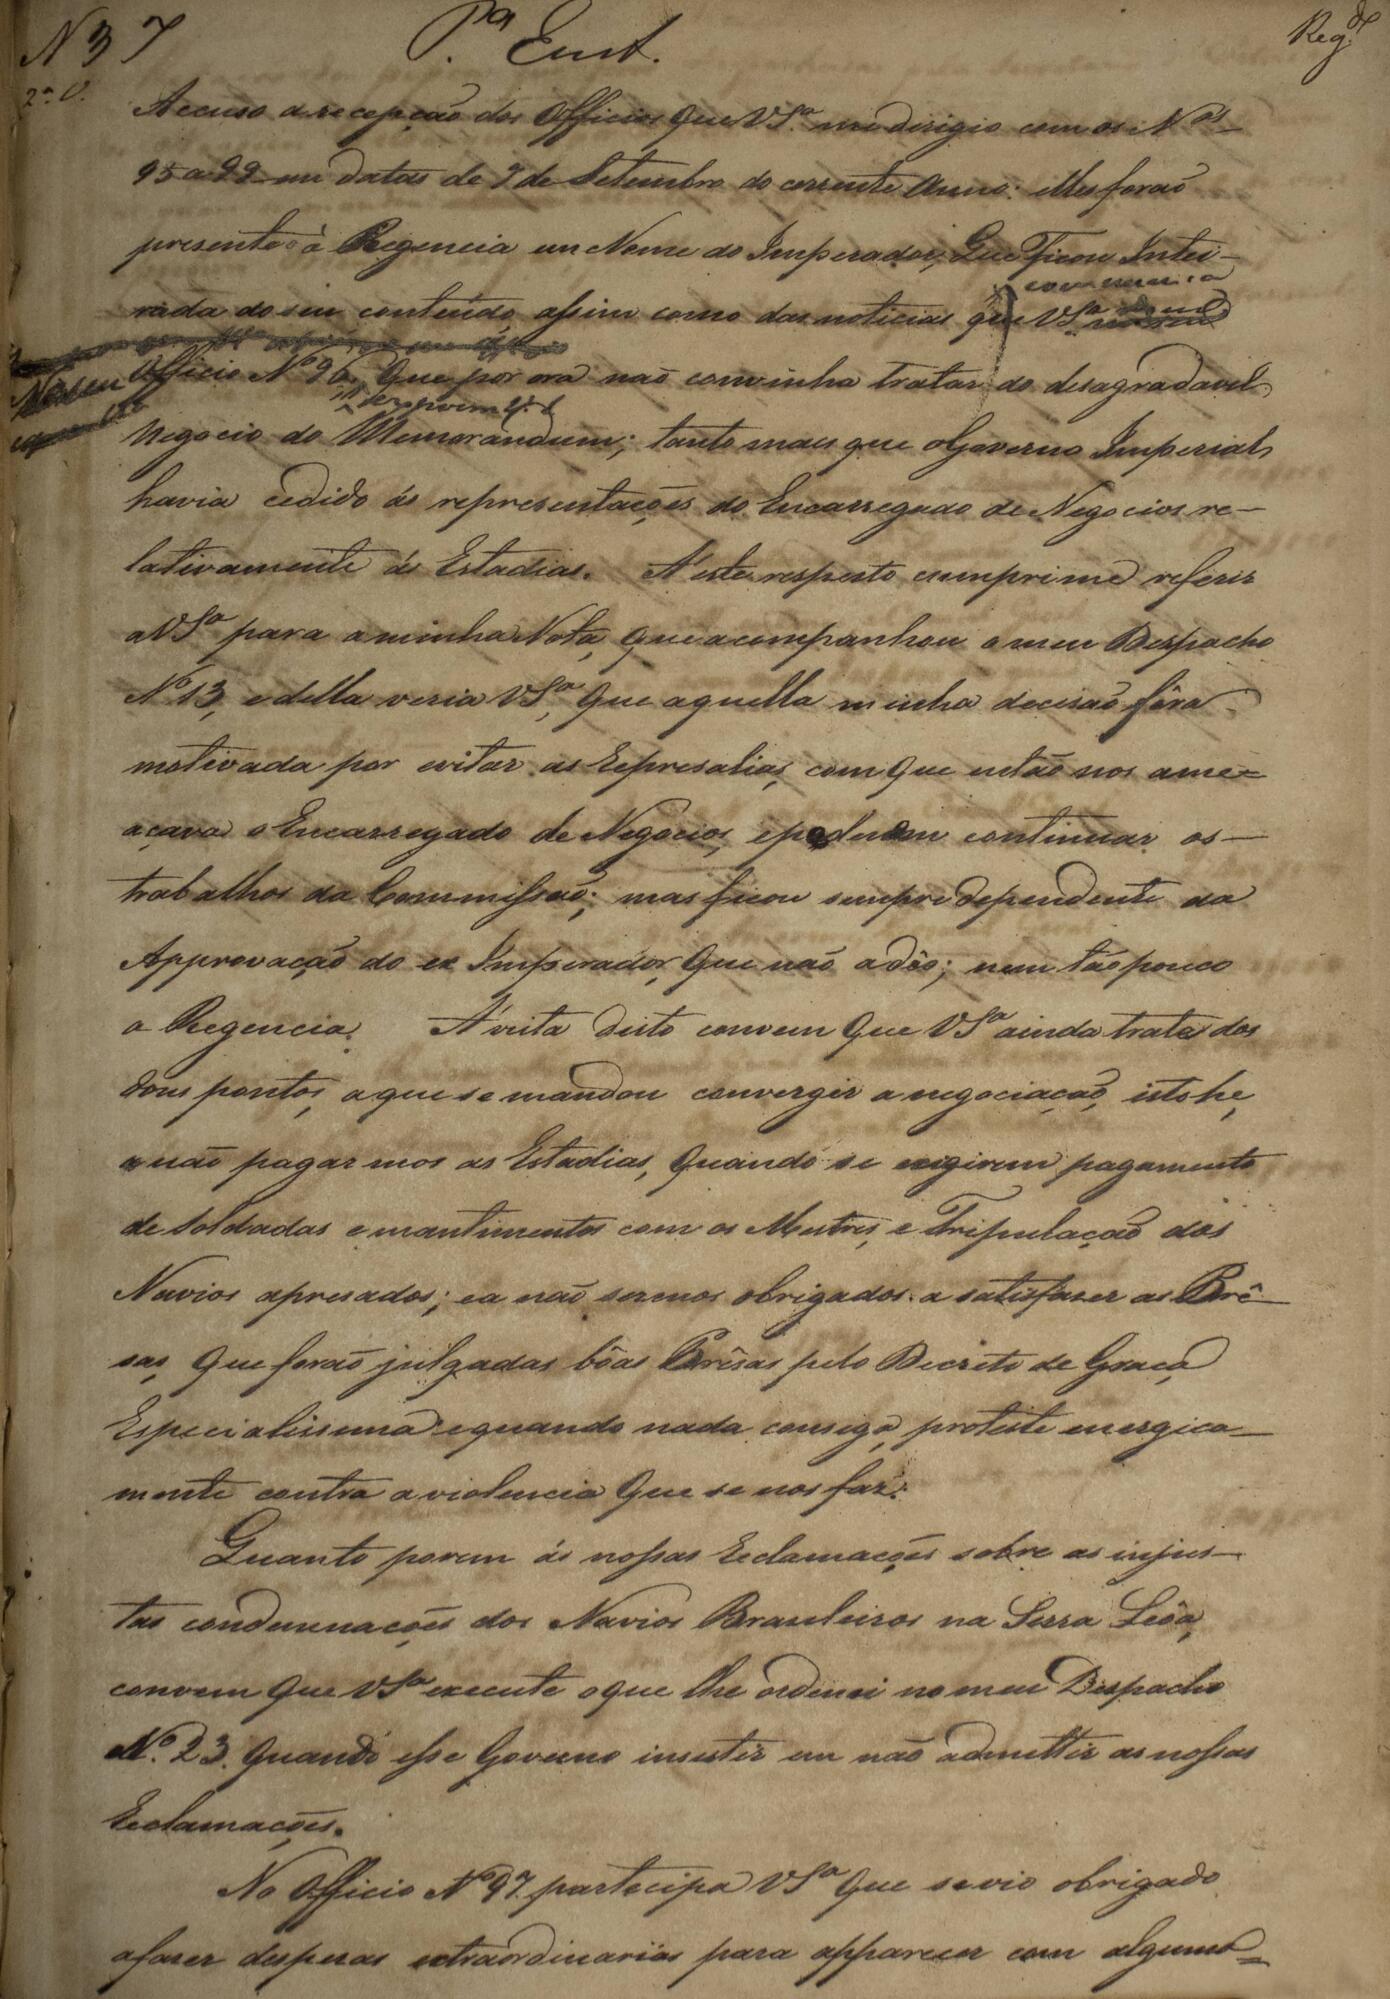 N 37 P.ª Eust. Reg.de
2.ª V.
Accuso a recepção dos Officios que VS.ª me dirigio com os N.os
95 a 99 em datas de 7 de Setembro do corrente Anno: elles forão
presentes á Regencia em Nome do Imperador, Que Ficou Intei-
rada do seu conteúdo, assim como das noticias que VS.ª
Officio Nº 96, que por ora não convinha tratar do desagradavel
Negocio do Memorandum; tanto mais que o Governo Imperial
havia cedido ás representações do Encarregado de Negocios re-
lativamente ás Estadias. A este respeito cumpre-me referir
a VS.ª para a minha Nota, que acompanhou o meu Despacho
Nº 13, e della veria VS.ª, que aquella minha decisão fôra
motivada por evitar as Represalias, com que então nos ame-
açava o Encarregado de Negocios, e poderem continuar os
trabalhos da Commissão; mas ficou sempre dependente da
Approvação do ex Imperador, que não a dêo; nem tão pouco
a Regencia. Á vista disto convem que VS.ª ainda trate dos
dous pontos, a que se mandou convergir a negociação, isto he,
a não pagarmos as Estadias, quando se exigirem pagamento
de soldadas e mantimentos com os Mestres, e Tripulação dos
Navios apresados; e a não sermos obrigados a satisfazer as Prê-
sas, que forão julgadas bôas Prêsas pelo Decreto de Graça
Especialissima: e quando nada consiga, proteste energica-
mente contra a violencia que se nos faz.
Quanto porem ás nossas Reclamações sobre as injus-
tas condemnações dos Navios Brasileiros na Serra Leôa,
convem que VS.ª execute o que lhe ordenei no meu Despacho
Nº. 23. quando esse Governo insistir em não admittir as nossas
Reclamações.
No Officio Nº 97. partecipa VS.ª que se vio obrigado
a fazer despezas extraordinarias para apparecer com alguma=